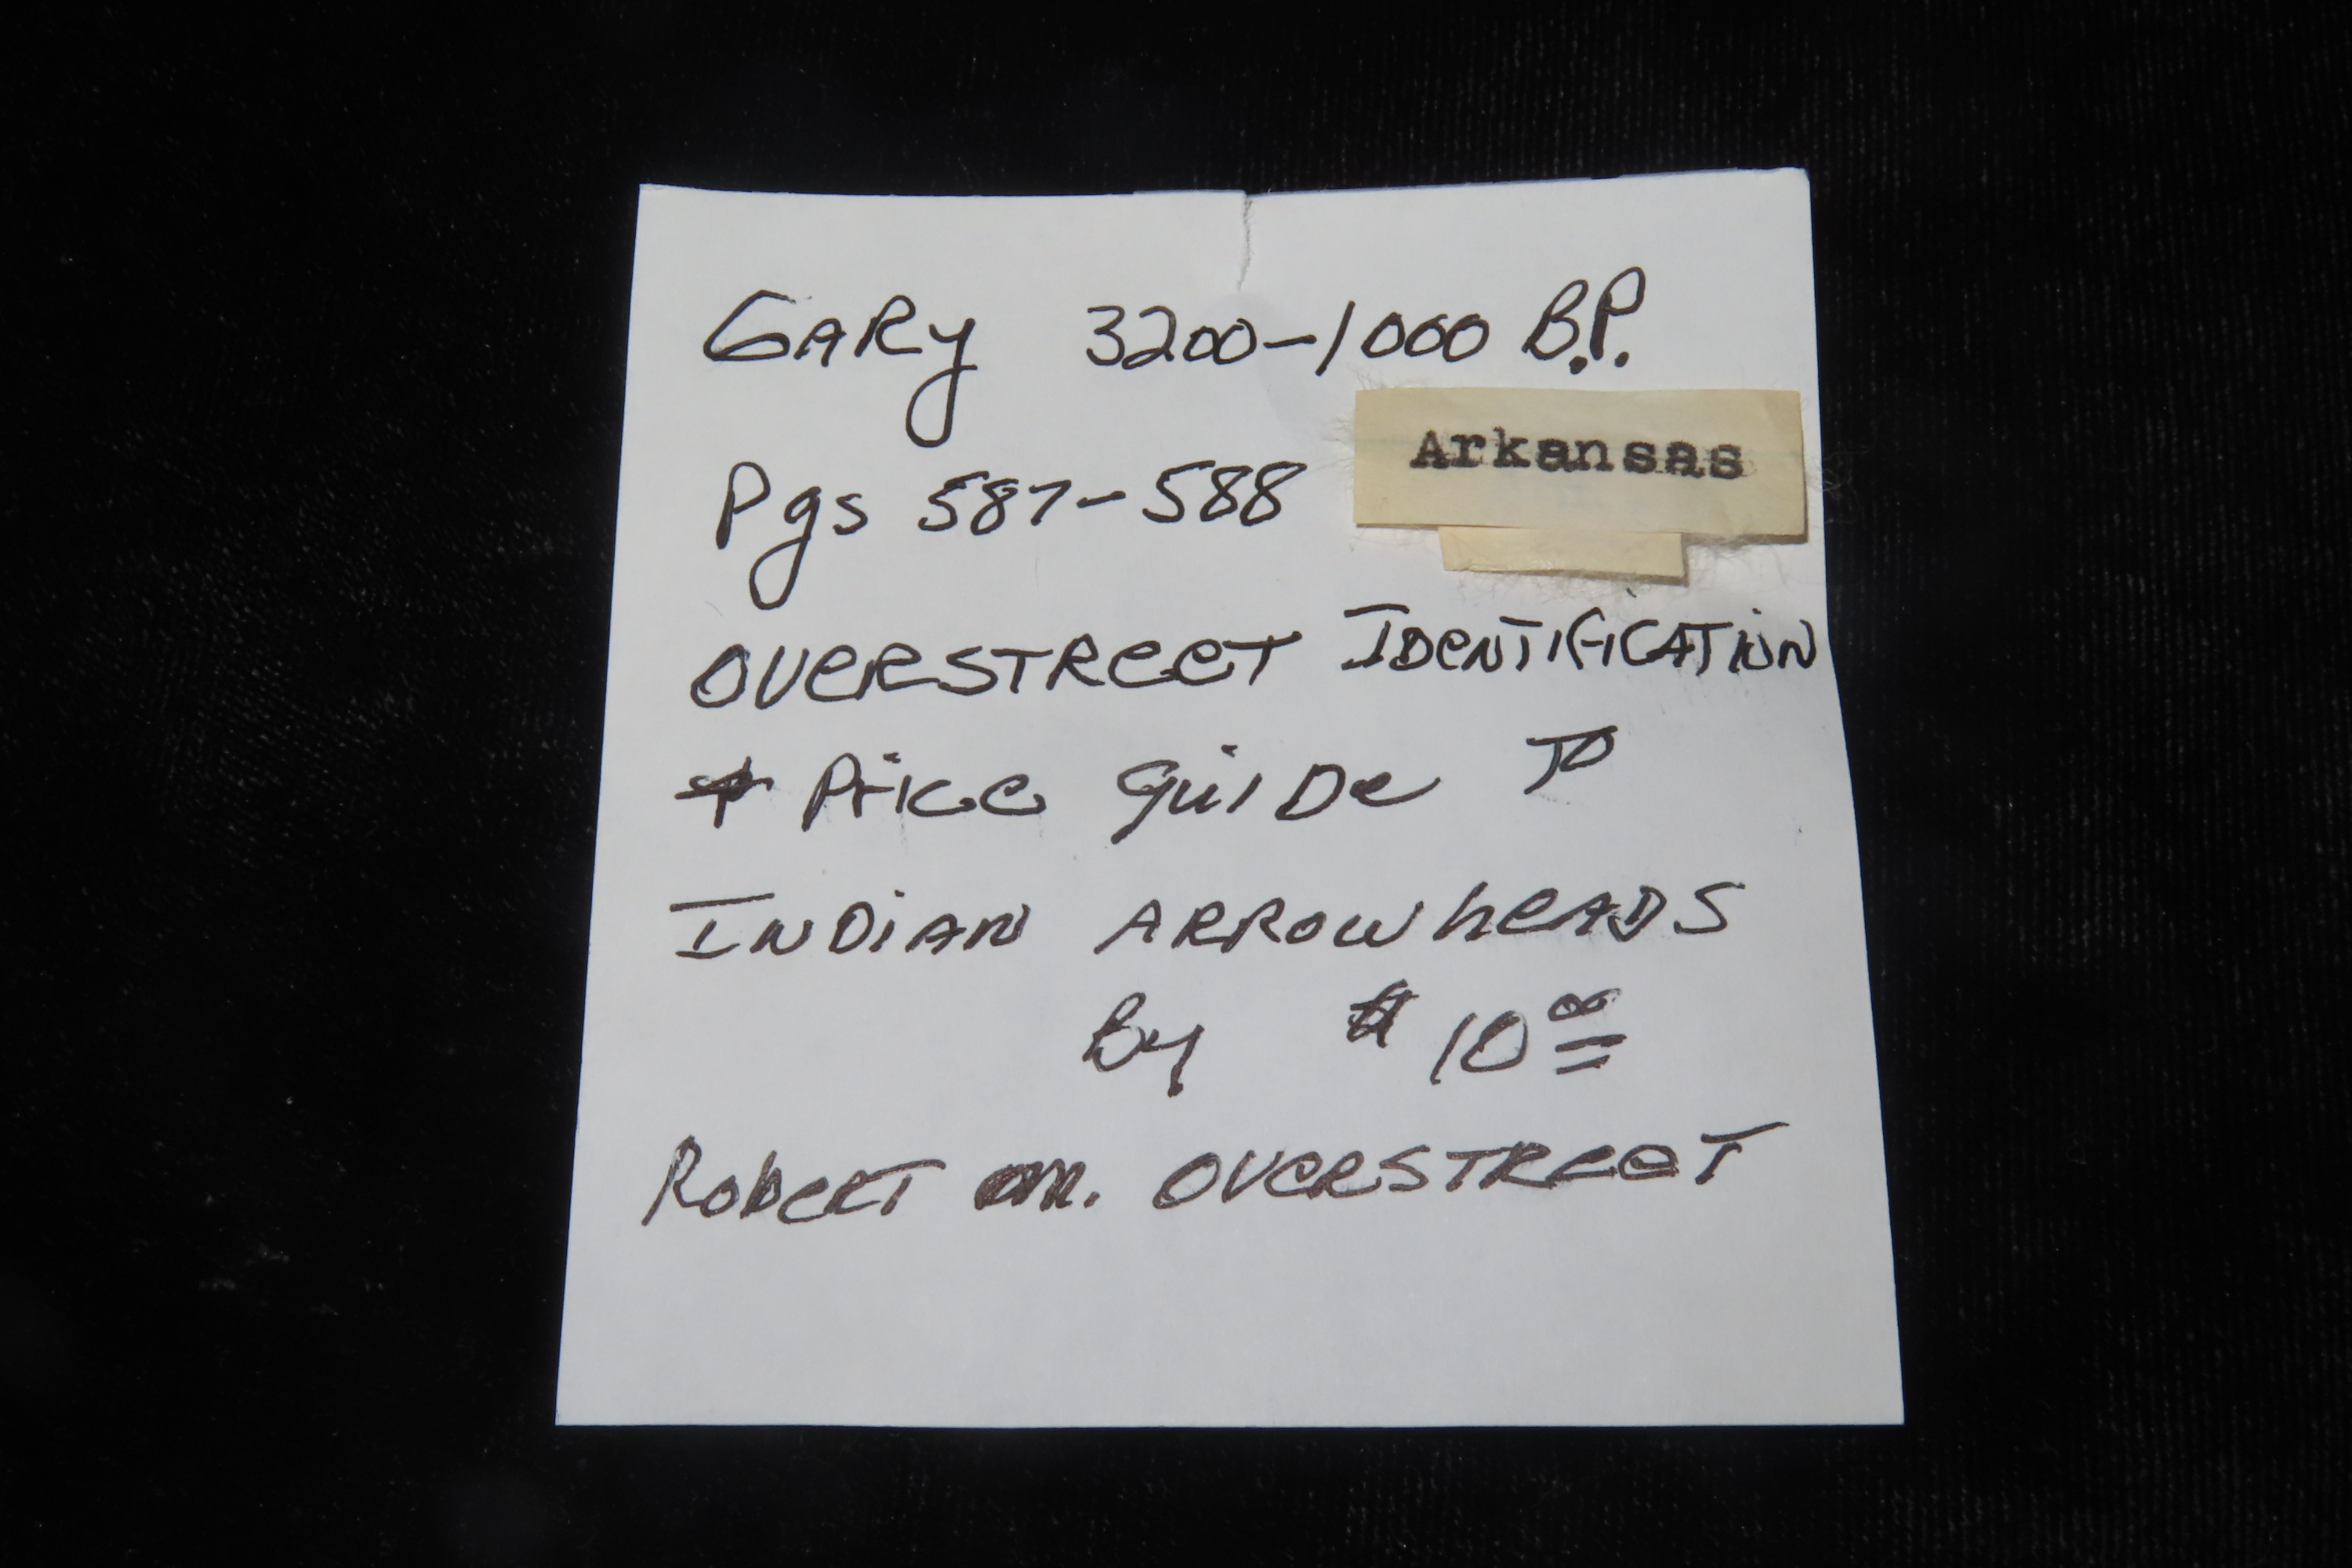 GARy 3200-1000 B.P.
Arkansas
Pgs 587-588
OVERSTREET IDENTIFICATION
+ Price Guide TO
INDIAN ARROWheADS
By $ 10 00
Robert m. OVERSTREET